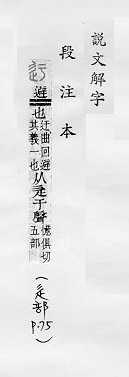 說文解字
段注本
避也迂曲回避其義一也从辵于聲憶俱切五部
(辵部 P.75)